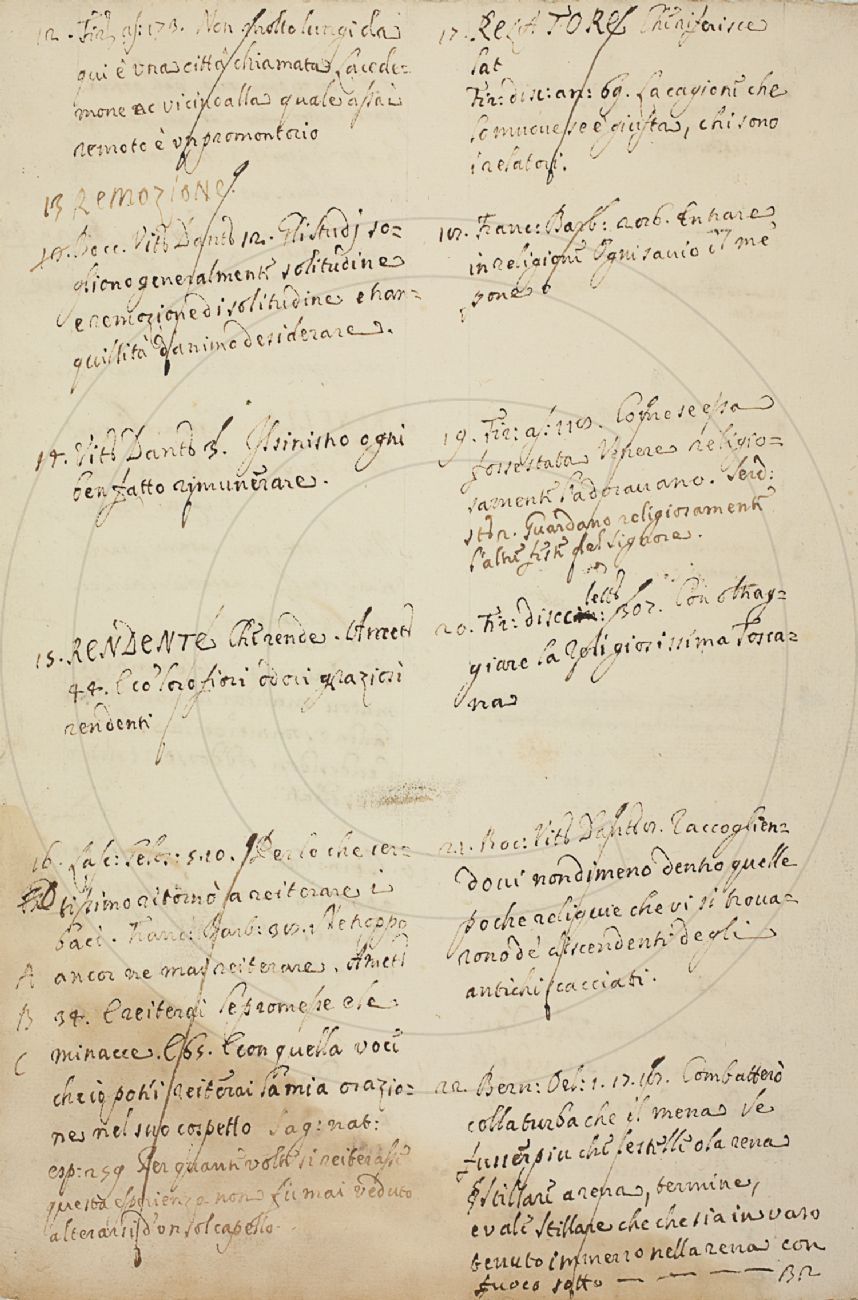 12. Fir: As: 173. Non molto lungi da
qui è una città chiamata Lacede=
mone ac vicino alla quale assai
remoto è un promontorio
13 REMOZIONE
Bocc. Vit: Dant: 12. Gli studj so=
gliono generalmente solitudine
e remozione di solitudine e tran=
quillità d'animo desiderare.
14. Vit: Dant: 3. Il sinistro ogni
ben fatto rimunerare.
15. RENDENTE Che rende. Amet:
44. E co' loro fiori odori graziosi
rendenti
16. Salv: 5.10. Perlo che cer=
tissimo ritornò a reiterare i
baci. Franc: Barb: Ne troppo
A ancor ne mai reiterare. Amet:
B 34. E reiterai le promesse e le
C minacce. E 65. E con quella voce
che io potei reiterai la mia orazio=
ne nel suo cospetto Sag: nat:
esp: 259 Per quante volte si reiterasse
questa esperienza non fu mai veduto
alterarsi d'un sol capello.
17. RELATORE Che riferisce
Lat
Fir: disc: an: 69. La cagione che
lo muove se è giusta, chi sono
i relatori.
18. Franc: Barb: Entrare
in religione Ogni savio il me
pone
19. Fir: As: 118. Come se essa
fosse stata Venere religio=
samente l'adoravano. Serd:
stor. Guardano religiosamente
l'altre feste del Signore.
20. Fir: disc: lett: 307. Con oltrag=
giare la religiosissima Tosca=
na
21. Boc: Vit: Dant: 8. Raccoglien=
dovi nondimeno dentro quelle
poche reliquie che vi si trova=
rono de' discendenti degli
antichi scacciati.
22. Bern: Orl: 1. 17. Combatterò
colla turba che il mena Se
fusser più che le stelle o la rena
Stillare a rena, termine,
e vale stillare che che sia in vaso
tenuto immerso nella rena con
fuoco sotto — — — — —